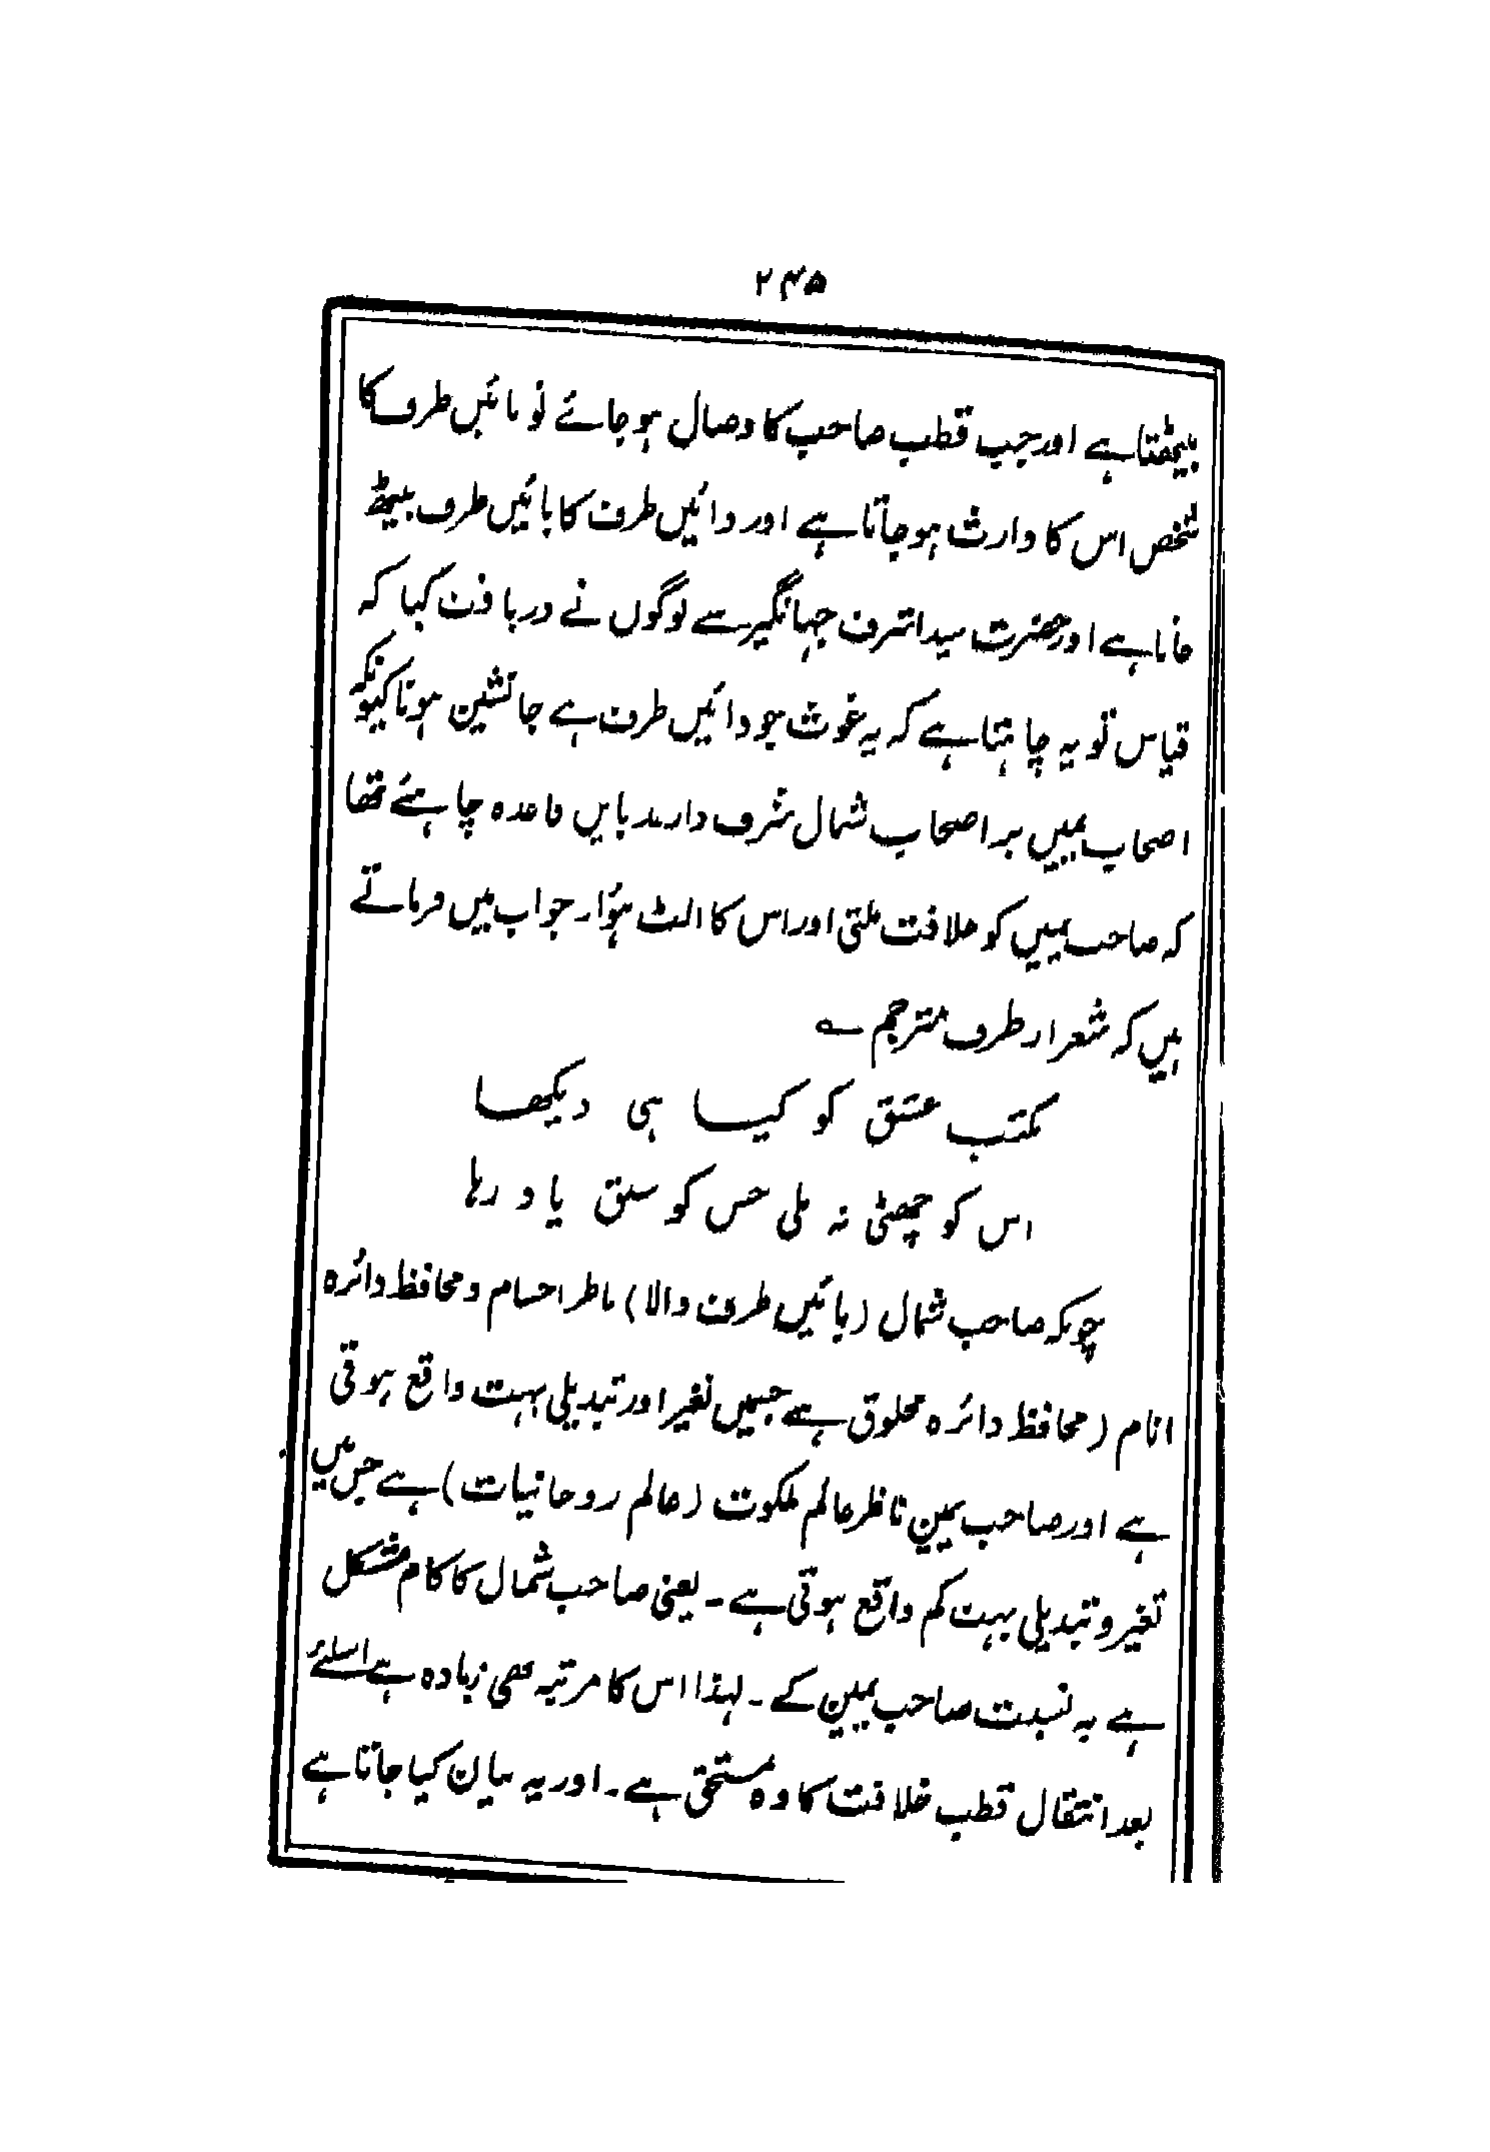 ۲۴۵
بیٹھتا ہے اور جب قطب صاحب کا وصال ہو جائے تو بائیں طرف کا
شخص اس کا وارث ہو جاتا ہے اور دائیں طرف کا بائیں طرف بیٹھ
جاتا ہے اور حضرت سید اشرف جہانگیر سے لوگوں نے دریافت کیا کہ
قیاس تو یہ چاہتا ہے کہ یہ غوث جو دائیں طرف ہے جانشین ہوتا کیونکہ
اصحاب یمین بر اصحاب شمال شرف دارند بایں قاعدہ چاہئے تھا
کہ صاحب یمین کو خلافت ملتی اور اس کا الٹ ہوا۔ جواب میں فرماتے
ہیں کہ شعر از طرف مترجم ؎
مکتب عشق کو کیسا ہی دیکھا
اس کو چھٹی نہ ملی جس کو سبق یاد رہا
چونکہ صاحب شمال (بائیں طرف والا) ناظر اجسام و محافظ دائرہ
انام (محافظ دائرہ مخلوق ہے جسمیں تغیر اور تبدیلی بہت واقع ہوتی
ہے اور صاحب یمین ناظر عالم ملکوت (عالم روحانیات) ہے جس میں
تغیر و تبدیلی بہت کم واقع ہوتی ہے ۔ یعنی صاحب شمال کا کام مشکل
ہے بہ نسبت صاحب یمین کے ۔ لہذا اس کا مرتبہ بھی زیادہ ہے اسلئے
بعد انتقال قطب خلافت کا وہ مستحق ہے ۔ اور یہ بیان کیا جاتا ہے